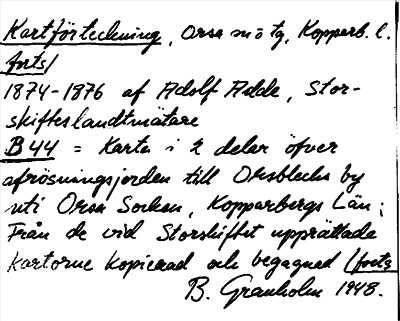 Kartförteckning, Orsa sn o tg, Kopparb. l.
forts/
1874-1876 af Adolf Adde, Stor-
skifteslandtmätare
B 44 = Karta i 2 delar öfver
afrösningsjorden till Orsbleck by
uti Orsa Socken, Kopparbergs Län;
Från de vid Storskiftet upprättade
Kartorne Kopierad och begagnad (forts
B. Granholm 1948.